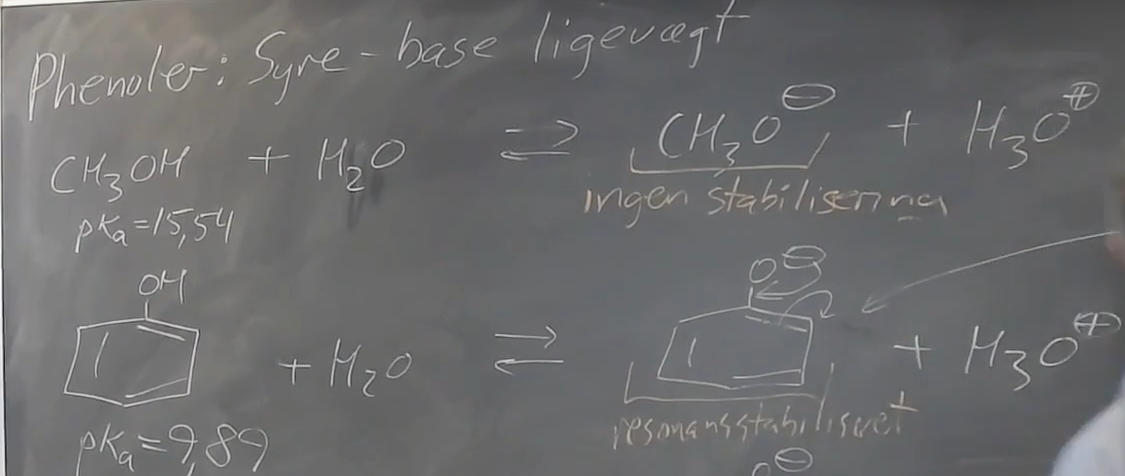 Phenoler: Syre-base ligevægt
CH₃OH + H₂O ⇌ CH₃O⊖ + H₃O⊕
ingen stabilisering
pKₐ=15,54
OH
O⊖
+ H₂O ⇌ + H₃O⊕
resonansstabiliseret
pKₐ=9,89
O⊖